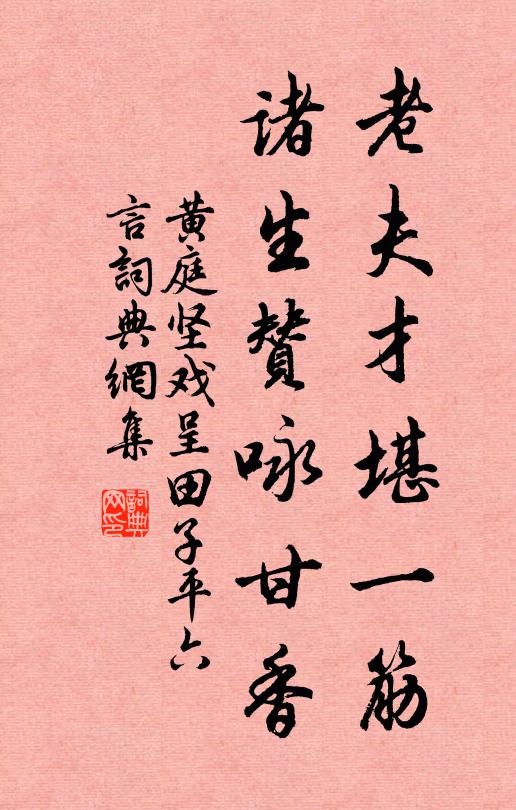 老夫才堪一筋
诸生賛咏甘香
黄庭坚戏呈田子平六
言詞典網集
詞典
网印